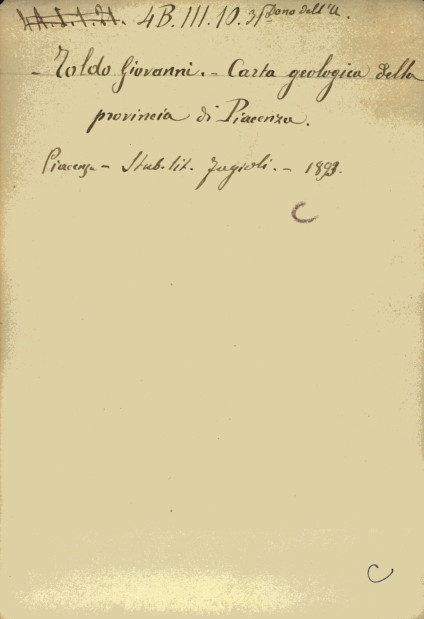 4A.I.1.21. 4B.III.10.31 Dono dell'A.
- Toldo Giovanni. - Carta geologica della
provincia di Piacenza.
Piacenza - Stab. lit. Fagioli. - 1893.
C
C